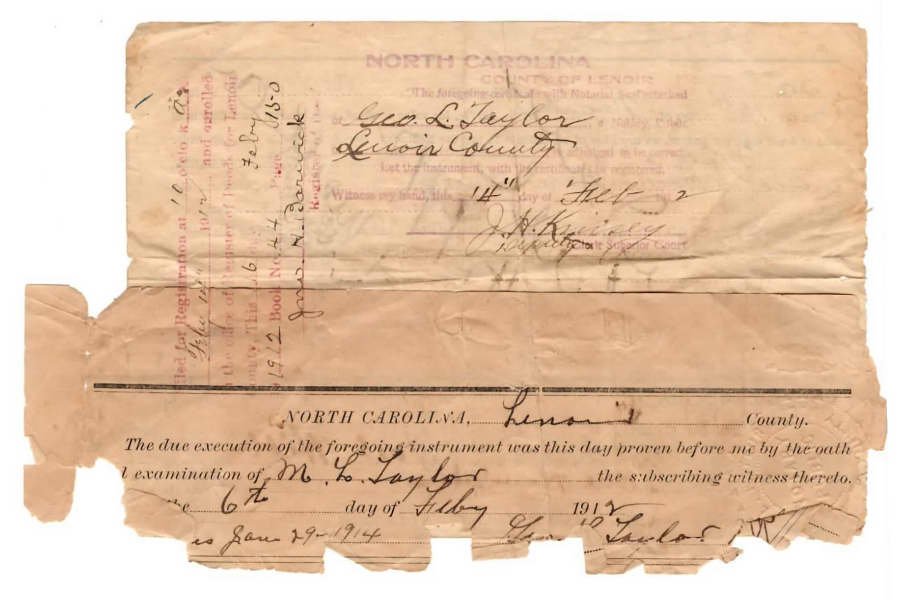 NORTH CAROLINA
COUNTY OF LENOIR
The foregoing with Notarial Seal attached
of Geo. L. Taylor a Notary Public
Lenoir County
let the instrument, with the certificates be registered.
Witness my hand, this "14" day of Feb 2
J. H. Kinsey
Deputy Clerk Superior Court
iled for Registration at 10 o'clock a.
1912 and enrolled
the office of Register of for Lenoir
ounty, This 16 Feby
1912 Book No. 44 Page 150
Jno. H. Barwick
Register
NORTH CAROLINA, Lenoir County.
The due execution of the foregoing instrument was this day proven before me by the oath
l examination of M. L. Taylor the subscribing witness thereto.
e 6th day of Feby 1912
is Jan 29-1914 Taylor